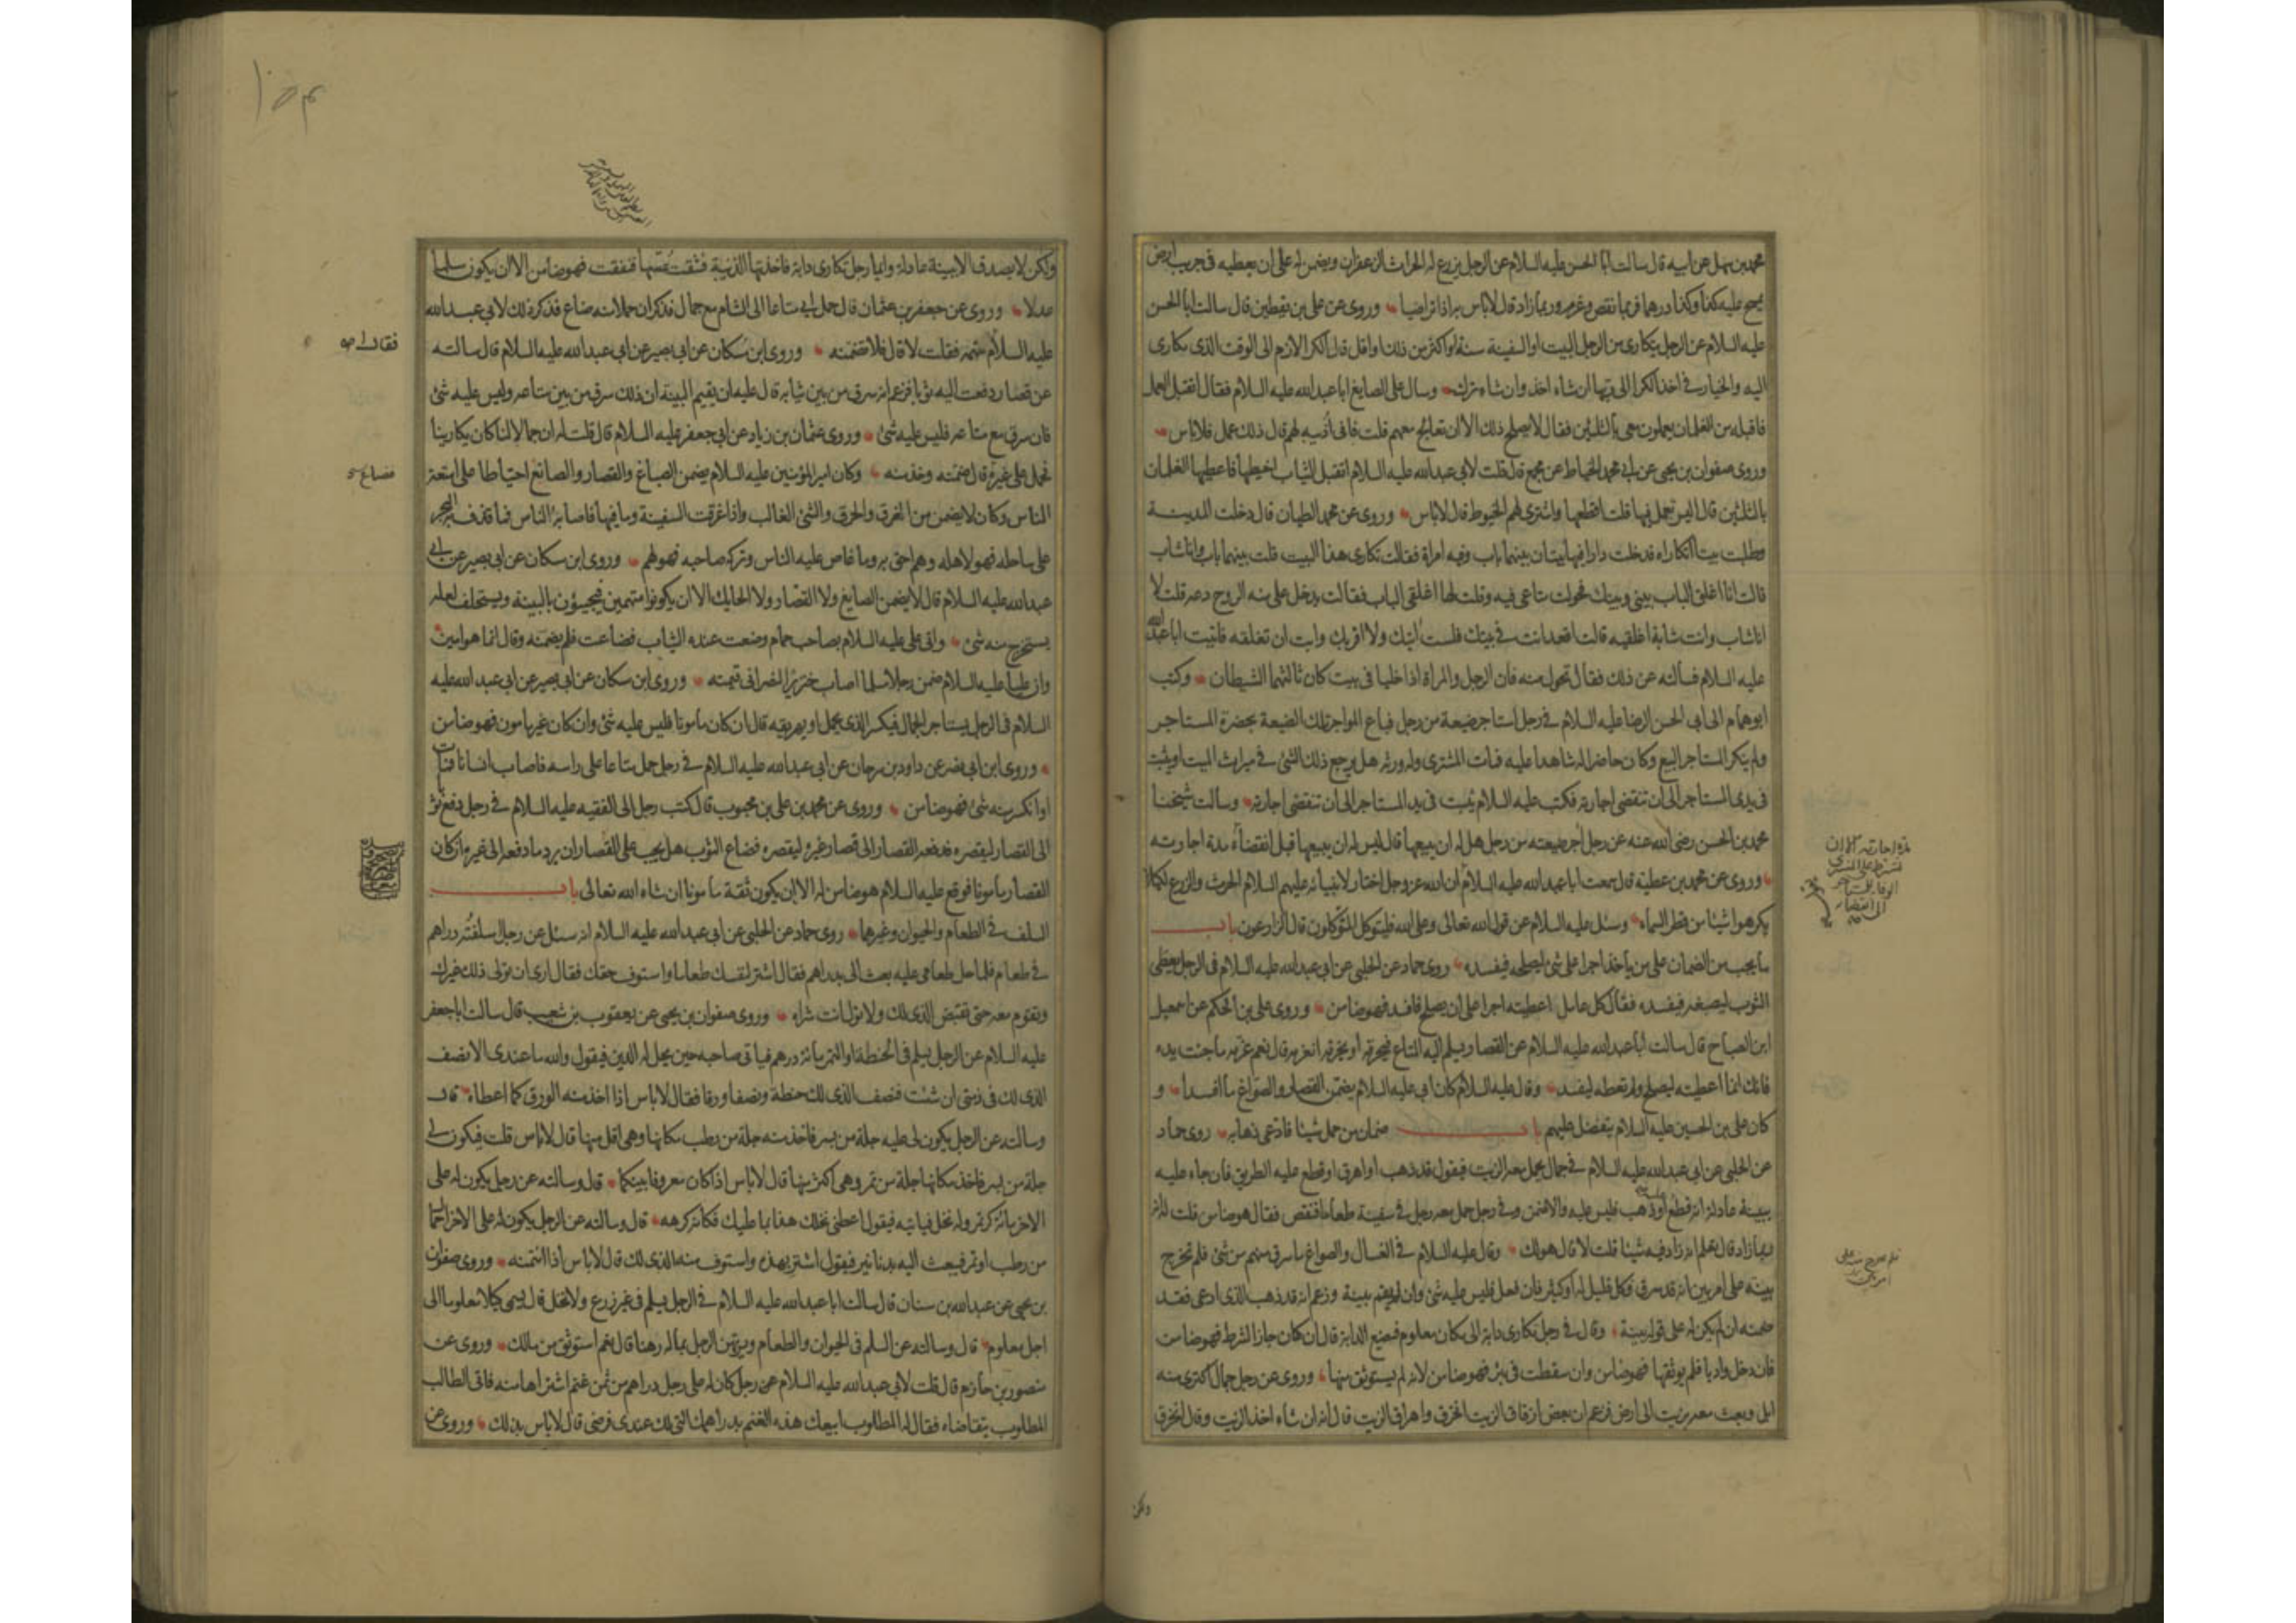 محمد بن سهل عن ابيه قال سالت ابا الحسن عليه السلام عن الرجل يزرع له الحراث الزعفران ويضمن له على ان يعطيه في جريب ارض
يمسح عليه كذا وكذا درهما فربما نقص وغرم وربما زاد قال لا باس به اذا تراضيا وروى عن علي بن يقطين قال سالت ابا الحسن
عليه السلام عن الرجل يتكارى من الرجل البيت او السفينة سنة او اكثر من ذلك او اقل قال الكرا لازم الى الوقت الذي تكارى
اليه والخيار في اخذ الكرا الى ربها ان شاء اخذ وان شاء ترك وسال علي الصايغ ابا عبدالله عليه السلام فقال اتقبل العمل
فاقبله من الغلمان يعملون معي بالثلثين فقال لا يصلح ذلك الا ان تعالج معهم قلت فاني اذيبه لهم قال ذلك عمل فلا باس
وروى صفوان بن يحيى عن ابي محمد الخياط عن مجمع قال قلت لابي عبدالله عليه السلام اتقبل الثياب اخيطها فاعطيها الغلمان
بالثلثين قال اليس تعمل فيها قلت اقطعها واشتري لهم الخيوط قال لا باس وروى عن محمد الطيان قال دخلت المدينة
وطلبت بيتا اتكاراه فدخلت دارا فيها بيتان بينهما باب وفيه امراة فقالت تكاري هذا البيت قلت بينهما باب وانا شاب
قالت انا اغلق الباب بيني وبينك فحولت متاعي فيه وقلت لها اغلقي الباب فقالت يدخل علي منه الروح دعه قلت لا
انا شاب وانت شابة اغلقيه قالت اقعد انت في بيتك فلست اتيك ولا اقربك وابت ان تغلقه فاتيت ابا عبد الله
عليه السلام فسالته عن ذلك فقال تحول منه فان الرجل والمراة اذا خليا في بيت كان ثالثهما الشيطان وكتب
ابو همام الى ابي الحسن الرضا عليه السلام في رجل استاجر ضيعة من رجل فباع المواجر تلك الضيعة بحضرة المستاجر
ولم ينكر المستاجر البيع وكان حاضرا له شاهدا عليه فمات المشتري وله ورثة هل يرجع ذلك الشئ في ميراث الميت او يثبت
في يدي المستاجر الى ان تنقضي اجارته فكتب عليه السلام يثبت في يد المستاجر الى ان تنقضي اجارته وسالت شيخنا
محمد بن الحسن رضي الله عنه عن رجل اجر ضيعته من رجل هل له ان يبيعها قال ليس له ان يبيعها قبل انقضاء مدة اجارته
وروى عن محمد بن عطية قال سمعت ابا عبدالله عليه السلام ان الله عز وجل اختار لانبيائه عليهم السلام الحرث والزرع لكيلا
يكرهوا شيئا من قطر السماء وسئل عليه السلام عن قول الله تعالى وعلى الله فليتوكل المتوكلون قال الزارعون باب
ما يجب من الضمان على من ياخذ اجرا على شئ ليصلحه فيفسده روى حماد عن الحلبي عن ابي عبدالله عليه السلام في الرجل يعطى
الثوب ليصبغه فيفسده فقال كل عامل اعطيته اجرا على ان يصلح فافسد فهو ضامن وروى علي بن الحكم عن اسمعيل
ابن الصباح قال سالت ابا عبدالله عليه السلام عن القصار يسلم اليه المتاع فيحرقه او يخرقه ايغرمه قال نعم غرمه ما جنت يده
فانك انما اعطيته ليصلح ولم تعطه ليفسد وقال عليه السلام كان ابي عليه السلام يضمن القصار والصواغ ما افسدا و
كان علي بن الحسين عليه السلام يتفضل عليهم باب ضمان من حمل شيئا فادعى ذهابه روى حماد
عن الحلبي عن ابي عبدالله عليه السلام في جمال يحمل معه الزيت فيقول قد ذهب او اهرق او قطع عليه الطريق فان جاء عليه
ببينة عادلة انه قطع او ذهب فليس عليه والا ضمن وفي رجل حمل معه رجل في سفينة طعاما فنقص فقال هو ضامن قلت له انه
ربما زاد قال يعلم انه زاد فيه شيئا قلت لا قال هو لك وقال عليه السلام في الغسال والصواغ ما سرق منهم من شئ فلم تخرج
بينه على امر بين انه قد سرق فكل قليل له او كثير فان فعل فليس عليه شئ وان لم يقم بينة وزعم انه قد ذهب الذي ادعى فقد
ضمنه ان لم يكن له على قوله بينة وقال في رجل تكارى دابة الى مكان معلوم فيضيع الدابة قال ان كان جاز الشرط فهو ضامن
فان دخل واديا فلم يوثقها فهو ضامن وان سقطت في بئر فهو ضامن لانه لم يستوثق منها وروى عن رجل جمال اكترى منه
ابل وبعث معه بزيت الى ارض فزعم ان بعض ازقاق الزيت انخرق واهراق الزيت قال انه ان شاء اخذ الزيت وقال انخرق
ولكن
ولكن لا يصدق الا ببينة عادلة وايما رجل تكارى دابة فاخذتها الذئبة فشقت فنفقت فهو ضامن الا ان يكون مسلما
عدلا وروى عن جعفر بن عثمان قال حمل ابي متاعا الى الشام مع جمال فذكر ان حملا منه ضاع فذكر ذلك لابي عبدالله
عليه السلام تتهمه فقلت لا قال فلا تضمنه وروى ابن مسكان عن ابي بصير عن ابي عبدالله عليه السلام قال سالته
عن قصار دفعت اليه ثوبا فزعم انه سرق من بين ثيابه قال عليه ان يقيم البينة ان ذلك سرق من بين متاعه وليس عليه شئ
فان سرق مع متاعه فليس عليه شئ وروى عثمان بن زياد عن ابي جعفر عليه السلام قال قلت له ان جمالا لنا كان يكارينا
فحمل على غيره قال ضمنه وخذ منه وكان امير المؤمنين عليه السلام يضمن الصباغ والقصار والصائغ احتياطا على امتعة
الناس وكان لا يضمن من الغرق والحرق والشئ الغالب واذا غرقت السفينة وما فيها فاصابه الناس فما قذف به البحر
على ساحله فهو لاهله وهم احق به وما غاص عليه الناس وتركه صاحبه فهو لهم وروى ابن مسكان عن ابي بصير عن ابي
عبدالله عليه السلام قال لا يضمن الصايغ ولا القصار ولا الحايك الا ان يكونوا متهمين فيجيؤن بالبينة ويستحلف لعله
يستخرج منه شئ واتى علي عليه السلام بصاحب حمام وضعت عنده الثياب فضاعت فلم يضمنه وقال انما هو امين
وان عليا عليه السلام ضمن رجلا مسلما اصاب خنزيرا لنصراني قيمته وروى ابن مسكان عن ابي بصير عن ابي عبد الله عليه
السلام في الرجل يستاجر الجمال فيكسر الذي يحمل او يهريقه قال ان كان مامونا فليس عليه شئ وان كان غير مامون فهو ضامن
وروى ابن ابي نصر عن داود بن سرحان عن ابي عبدالله عليه السلام في رجل حمل متاعا على راسه فاصاب انسانا فمات
او انكسر منه شئ فهو ضامن وروى عن محمد بن علي بن محبوب قال كتب رجل الى الفقيه عليه السلام في رجل دفع ثوبا
الى القصار ليقصره فدفعه القصار الى قصار غيره ليقصره فضاع الثوب هل يجب على القصار ان يرد ما دفعه الى غيره وان كان
القصار مامونا فوقع عليه السلام هو ضامن له الا ان يكون ثقة مامونا ان شاء الله تعالى باب
السلف في الطعام والحيوان وغيرهما روى حماد عن الحلبي عن ابي عبدالله عليه السلام انه سئل عن رجل سلفته دراهم
في طعام فلما حل طعامي عليه بعث الي بدراهم فقال اشتر لنفسك طعاما واستوف حقك فقال ارى ان تولى ذلك غيرك
وتقوم معه حتى تقبض الذي لك ولا تتول انت شراه وروى صفوان بن يحيى عن يعقوب بن شعيب قال سالت ابا جعفر
عليه السلام عن الرجل يسلم في الحنطة او التمر بمائة درهم فياتي صاحبه حين يحل له الدين فيقول والله ما عندي الا نصف
الذي لك فخذ مني ان شئت فنصف الذي لك حنطة ونصفا ورقا فقال لا باس اذا اخذ منه الورق كما اعطاه قال
وسالته عن الرجل يكون لي عليه جلة من بسر فاخذ منه جلة من رطب مكانها وهي اقل منها قال لا باس قلت فيكون لي
جلة من بسر فاخذ مكانها جلة من تمر وهي اكثر منها قال لا باس اذا كان معروفا بينكما قال وسالته عن رجل يكون له على
الاخر مائة كر تمر وله نخل فياتيه فيقول اعطني نخلك هذا بما عليك فكانه كرهه قال وسالته عن الرجل يكون له على الاخر احمال
من رطب او تمر فيبعث اليه بدنانير فيقول اشتر بهذه واستوف منه الذي لك قال لا باس اذا ائتمنه وروى صفوان
بن يحيى عن عبدالله بن سنان قال سالت ابا عبدالله عليه السلام في الرجل يسلم في غير زرع ولا نخل قال يسمى كيلا معلوما الى
اجل معلوم قال وسالته عن السلم في الحيوان والطعام ويرتهن الرجل بماله رهنا قال نعم استوثق من مالك وروى عن
منصور بن حازم قال قلت لابي عبدالله عليه السلام عن رجل كان له على رجل دراهم من ثمن غنم اشتراها منه فاتى الطالب
المطلوب يتقاضاه فقال له المطلوب ابيعك هذه الغنم بدراهمك التي لك عندي فرضي قال لا باس بذلك وروى عن
فقال
ضاع